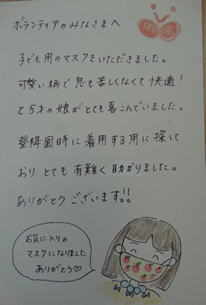 ボランティアのみなさまへ
子ども用のマスクをいただきました。
可愛い柄で息も苦しくなくて快適!
と5才の娘がとても喜こんでいました。
登降園時に着用する用に探して
おり とても有難く助かりました。
ありがとうございます!!
お気に入りの
マスクになりました
ありがとう♡